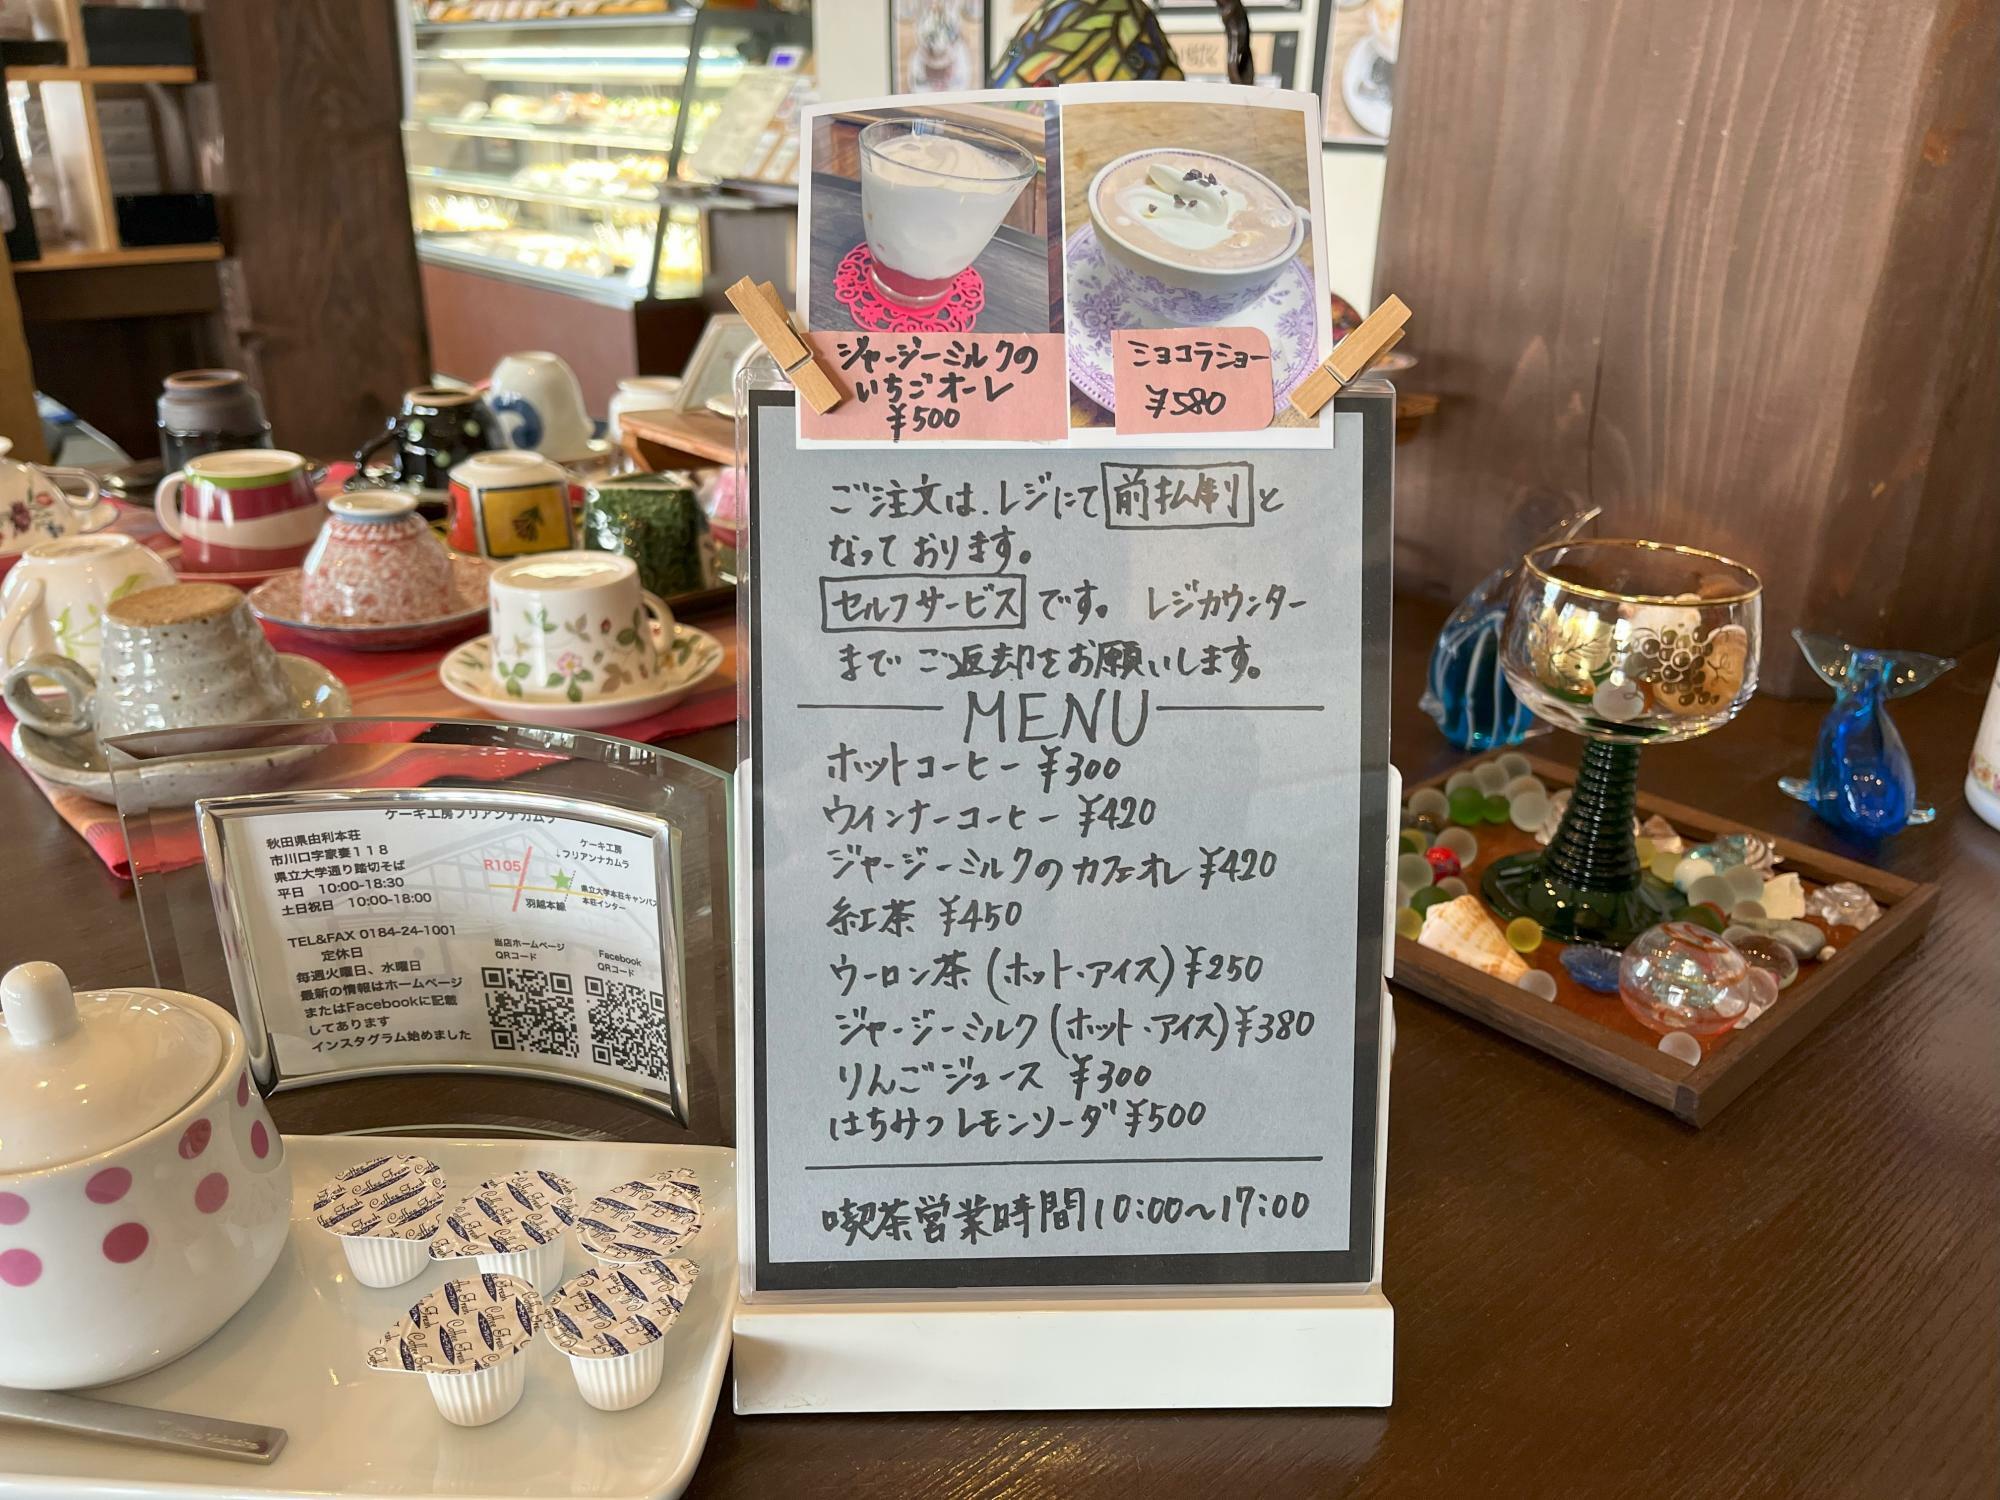 ジャージーミルクの
いちごオーレ
¥500
ショコラショー
¥580
ご注文は、レジにて前払制と
なっております。
セルフサービスです。 レジカウンター
までご返却をお願いします。
MENU
ホットコーヒー ¥300
ウインナーコーヒー ¥420
ジャージーミルクのカフェオレ ¥420
紅茶 ¥450
ウーロン茶 (ホット・アイス) ¥250
ジャージーミルク (ホット・アイス) ¥380
りんごジュース ¥300
はちみつレモンソーダ ¥500
喫茶営業時間 10:00〜17:00
ケーキ工房フリアンナカムラ
秋田県由利本荘
市川口字家妻118
県立大学通り踏切そば
平日 10:00-18:30
土日祝日 10:00-18:00
TEL&FAX 0184-24-1001
定休日
毎週火曜日、水曜日
最新の情報はホームページ
またはFacebookに記載
してあります
インスタグラム始めました
ケーキ工房
フリアンナカムラ
R105
県立大学本荘キャンパス
本荘インター
羽越本線
当店ホームページ
QRコード
Facebook
QRコード
Coffee Fresh
Coffee Fresh
Coffee Fresh
Coffee Fresh
Coffee Fresh